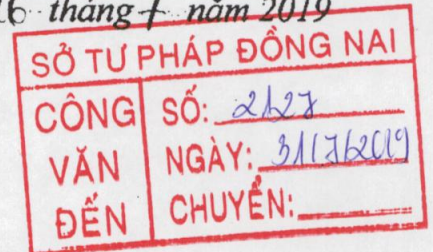 16 tháng 7 năm 2019
SỞ TƯ PHÁP ĐỒNG NAI
CÔNG VĂN ĐẾN
SỐ: 2127
NGÀY: 31/7/2019
CHUYỂN: